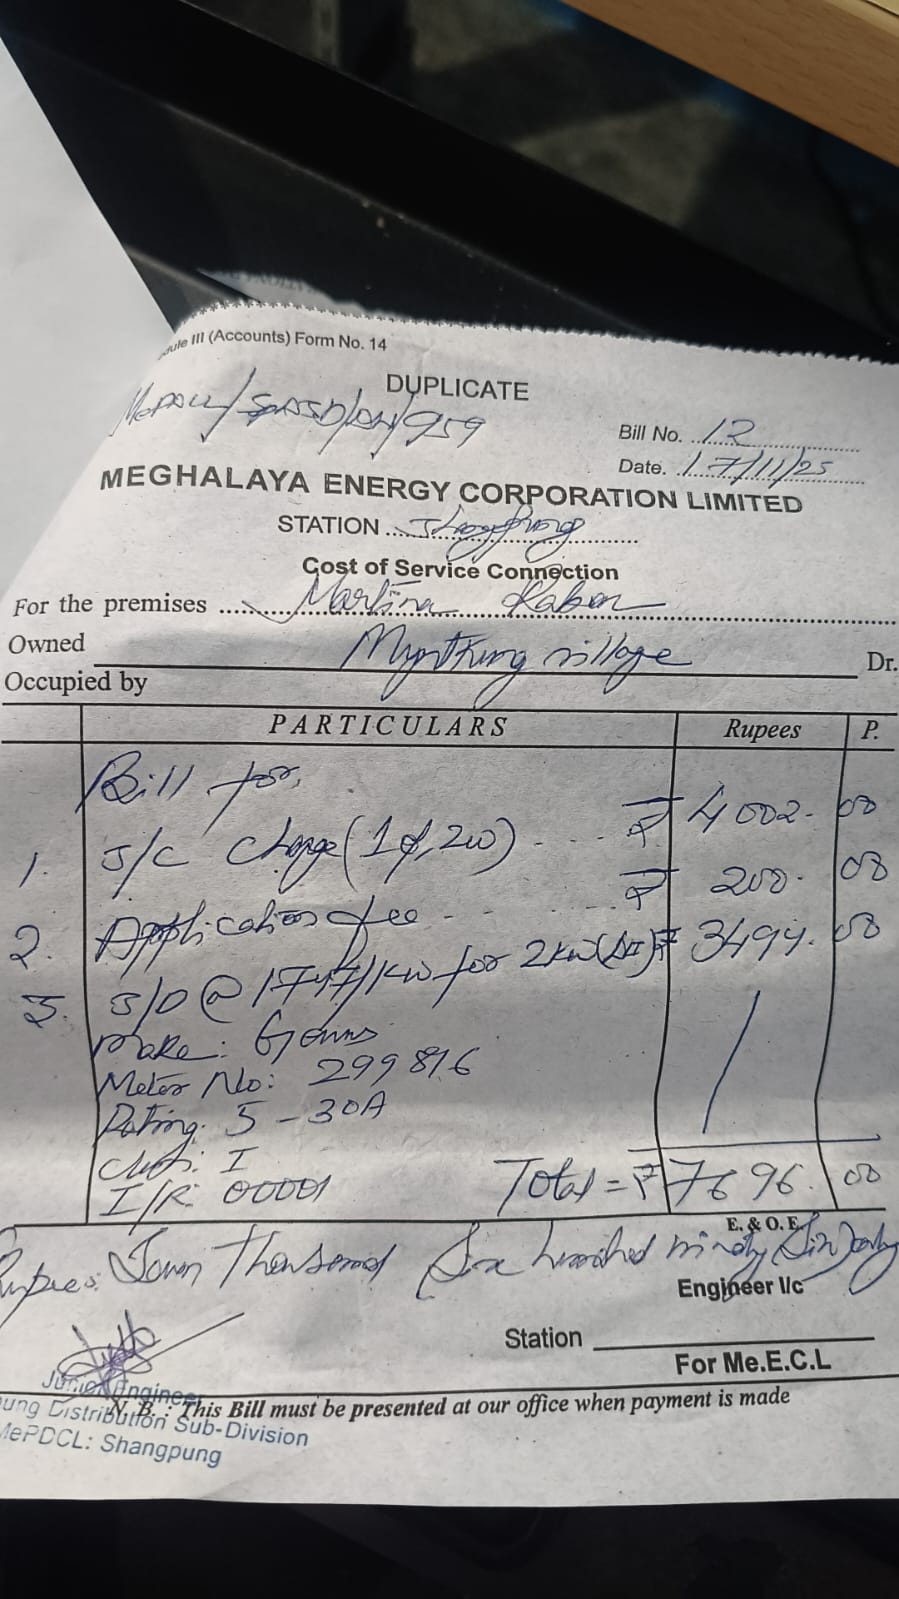 ule III (Accounts) Form No. 14
DUPLICATE
MePDCL/SPDSD/ /959
Bill No. 12
Date. 17/11/25
MEGHALAYA ENERGY CORPORATION LIMITED
STATION Shangpung
Cost of Service Connection
For the premises Martina Raben
Owned
Mynthning village Dr.
Occupied by
PARTICULARS Rupees P.
Bill for,
1. S/C Charge (1φ, 2w) - - - ₹ 4002. 00
2. Application fee - - - ₹ 200. 00
3. S/D @ 1747/kw for 2kw ₹ 3494. 00
Make: Genus
Meter No: 299816
Rating: 5 - 30A
Class: I
I/R: 00001
Total = ₹ 7696. 00
E. & O. E.
Rupees: Seven Thousand Six hundred ninety Six only
Engineer I/c
Station
For Me.E.C.L
N. B. : This Bill must be presented at our office when payment is made
Junior Engineer
ung Distribution Sub-Division
MePDCL: Shangpung